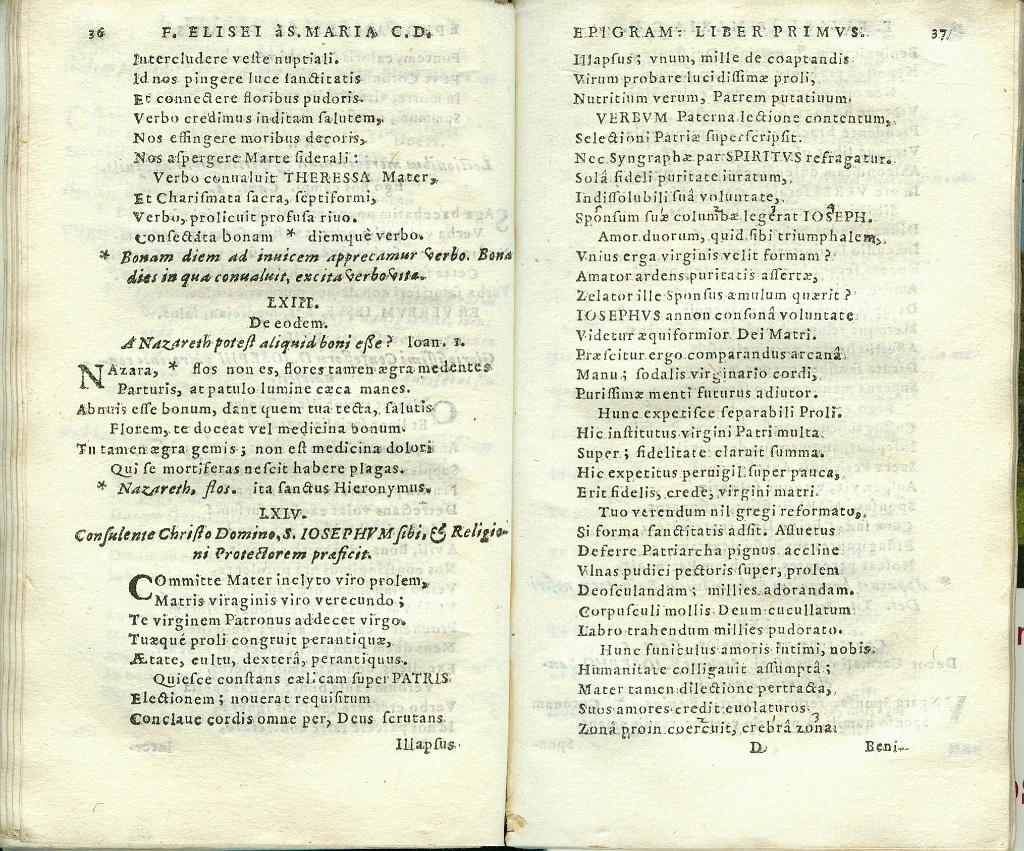 36 F. ELISEI à S. MARIA C.D.
Intercludere veste nuptiali.
Id nos pingere luce sanctitatis
Et connectere floribus pudoris.
Verbo credimus inditam salutem,
Nos effingere moribus decoris,
Nos aspergere Marte siderali:
Verbo conualuit THERESSA Mater,
Et Charismata sacra, septiformi,
Verbo, prolicuit profusa riuo.
Consectáta bonam * diemquè verbo.
* Bonam diem ad inuicem apprecamur verbo. Bona
dies in qua conualuit, excita verbo vita.
LXIII.
De eodem.
A Nazareth potest aliquid boni esse? Ioan. 1.
NAzara, * flos non es, flores tamen ægra medentes
Parturis, at patulo lumine cæca manes.
Abnuis esse bonum, dant quem tua tecta, salutis
Florem, te doceat vel medicina bonum.
Tu tamen ægra gemis; non est medicina dolori
Qui se mortiferas nescit habere plagas.
* Nazareth, flos. ita sanctus Hieronymus.
LXIV.
Consulente Christo Domino, S. IOSEPHVM sibi, & Religio-
ni Protectorem præficit.
COmmitte Mater inclyto viro prolem,
Matris viraginis viro verecundo;
Te virginem Patronus addecet virgo.
Tuæqué proli congruit perantiquæ,
Ætate, cultu, dexterâ, perantiquus.
Quiesce constans cælicam super PATRIS
Electionem; nouerat requisitum
Conclaue cordis omne per, Deus scrutans
Illapsus.
EPIGRAM: LIBER PRIMVS. 37
Illapsus; vnum, mille de coaptandis
Virum probare lucidissimæ proli,
Nutritium verum, Patrem putatiuum.
VERBVM Paterna lectione contentum,
Selectioni Patriæ superscripsit.
Nec Syngraphæ par SPIRITVS refragatur.
Solâ fideli puritate iuratum,
Indissolubili suâ voluntate,
Sponsum suæ columbæ legerat IOSEPH.
Amor duorum, quid sibi triumphalem,
Vnius erga virginis velit formam?
Amator ardens puritatis assertæ,
Zelator ille Sponsus æmulum quærit?
IOSEPHVS annon consonâ voluntate
Videtur æquiformior Dei Matri.
Præscitur ergo comparandus arcanâ
Manu; sodalis virginario cordi,
Purissimæ menti futurus adiutor.
Hunc expetisce separabili Proli.
Hic institutus virgini Patri multa
Super; fidelitate claruit summa.
Hic expetitus peruigil super pauca,
Erit fidelis, crede, virgini matri.
Tuo verendum nil gregi reformato,
Si forma sanctitatis adsit. Assuetus
Deferre Patriarcha pignus accline
Vlnas pudici pectoris super, prolem
Deosculandam; millies adorandam.
Corpusculi mollis Deum cucullatum
Labro trahendum millies pudorato.
Hunc funiculus amoris intimi, nobis
Humanitate colligauit assumptâ;
Mater tamen dilectione pertracta,
Suos amores credit euolaturos
Zonâ proin coercuit, crebrâ zona:
D Beni-